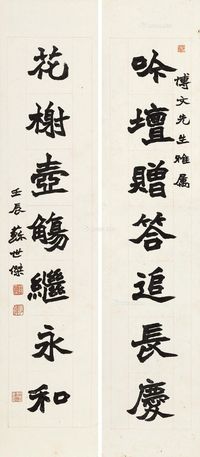 博文先生雅屬
吟壇贈答追長慶
花榭壺觴繼永和
壬辰蘇世傑